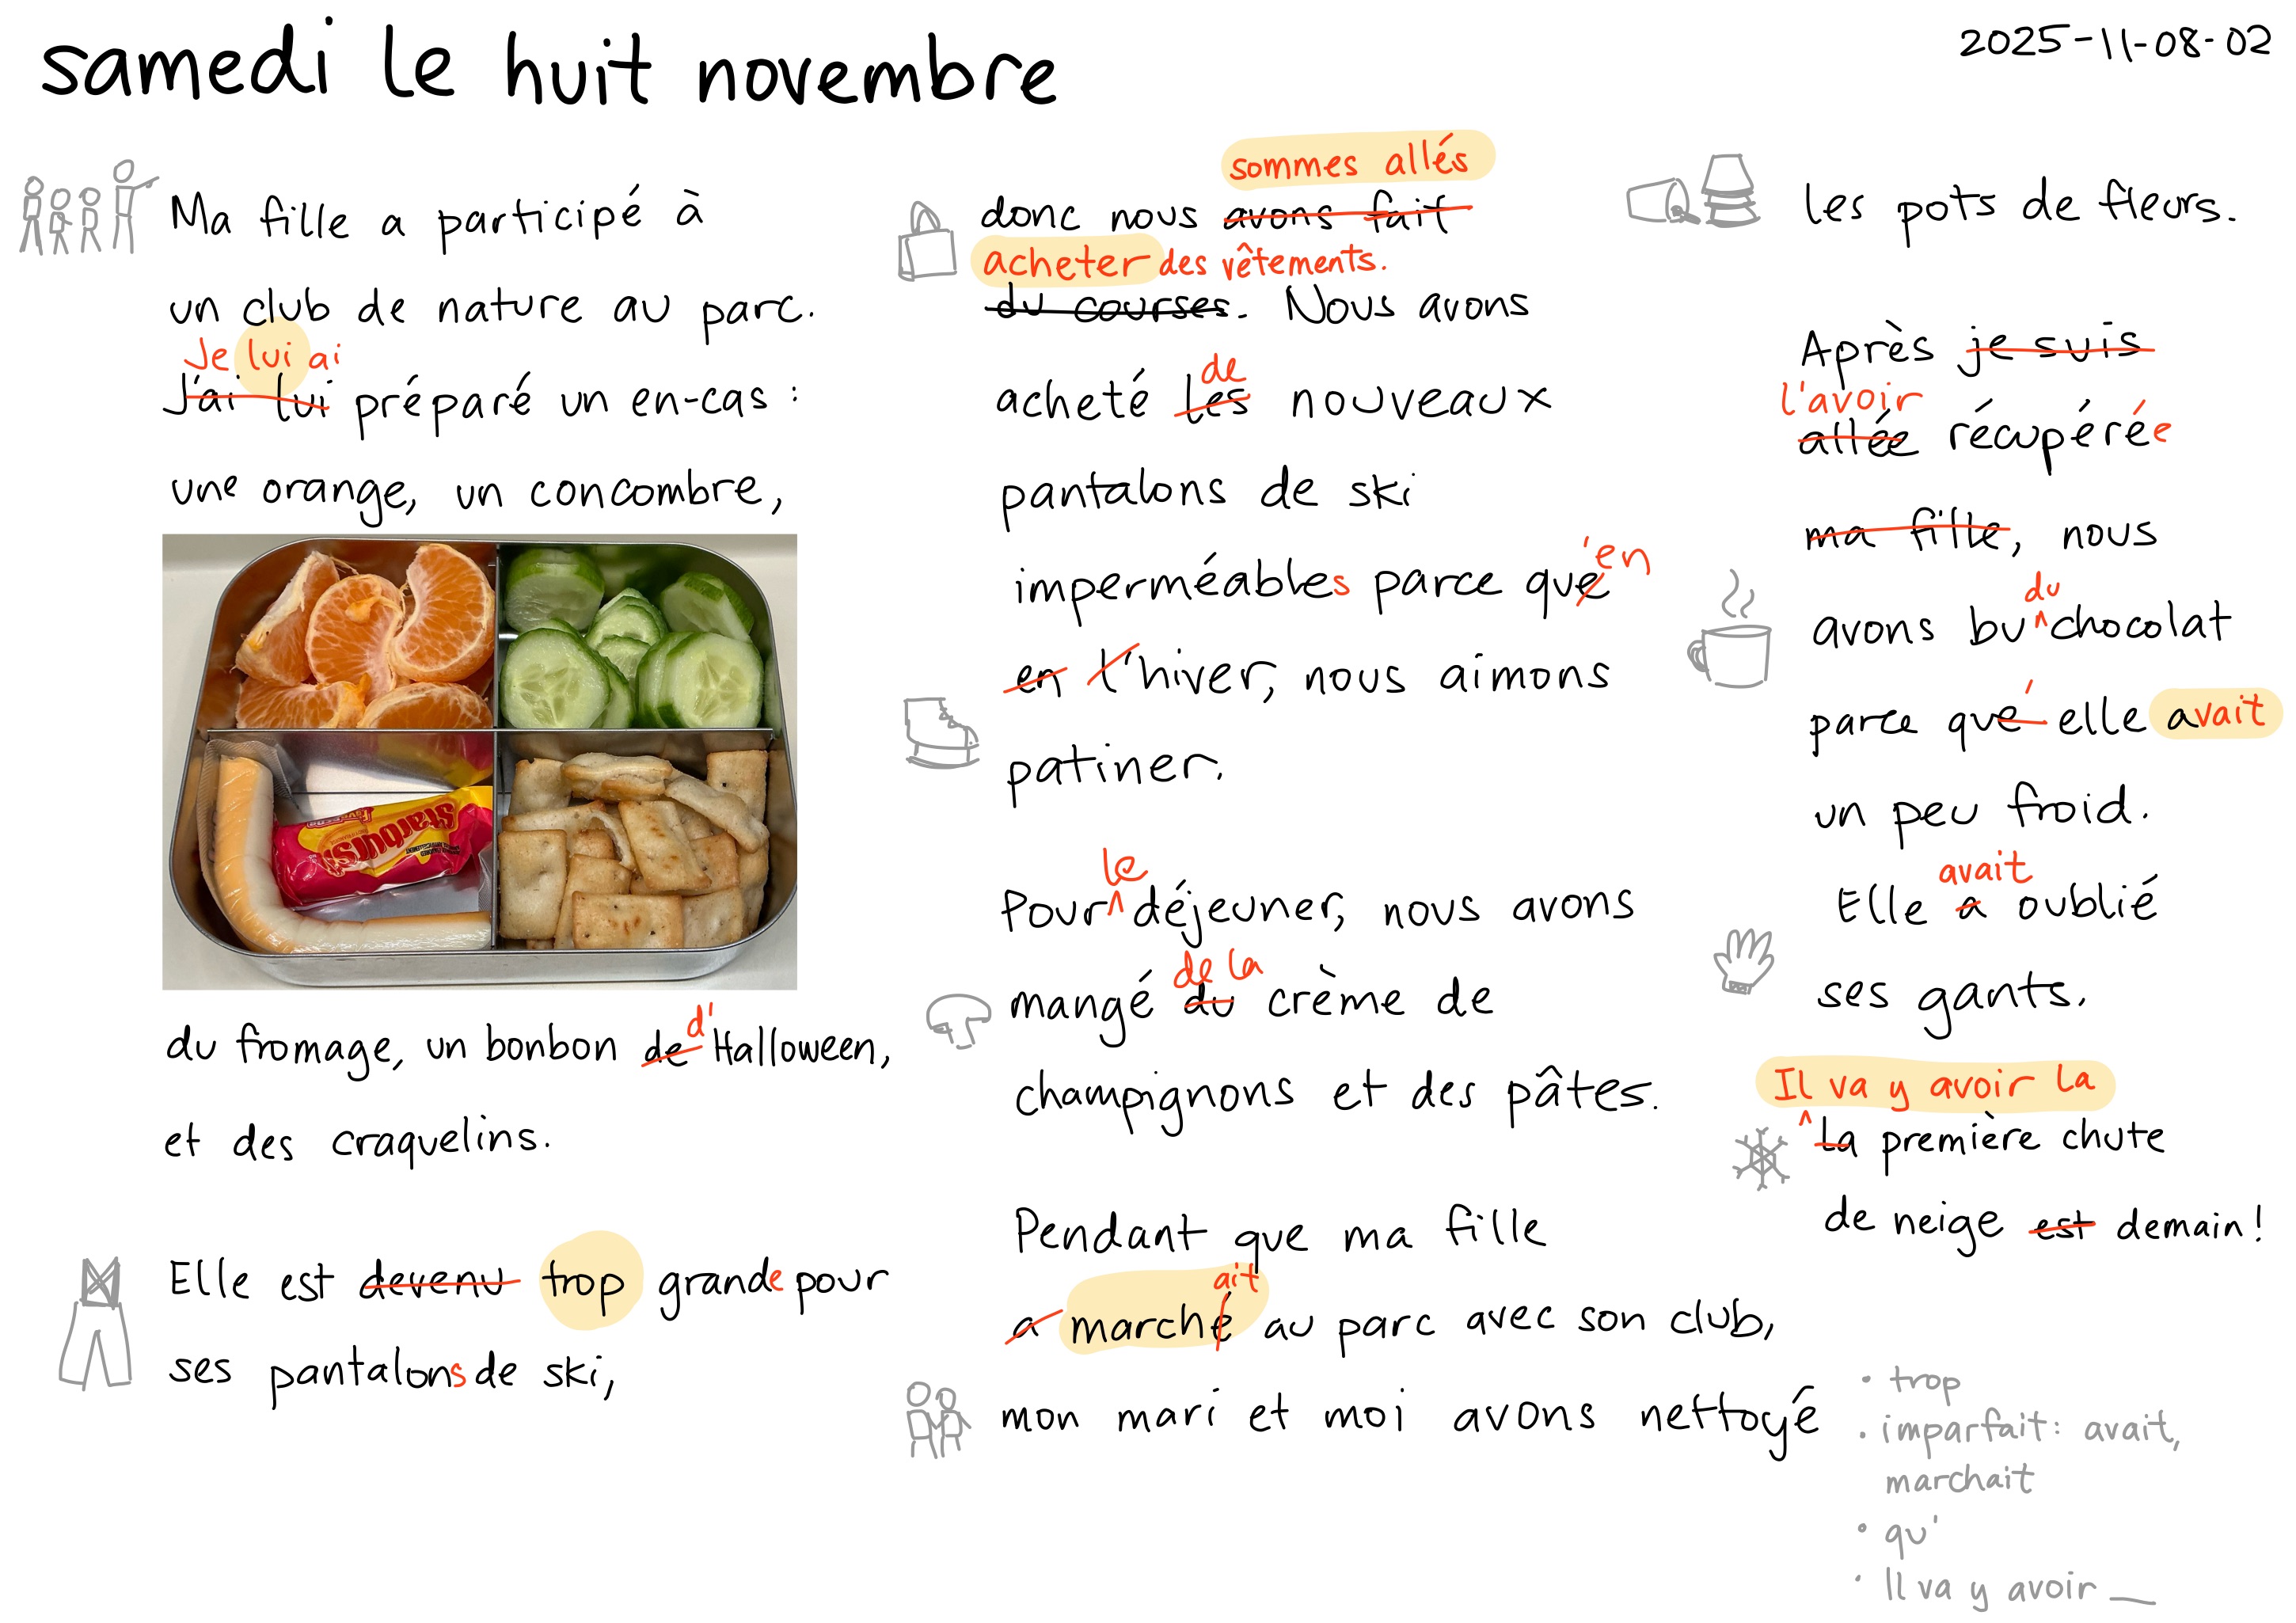 samedi le huit novembre
2025-11-08-02
Ma fille a participé à
un club de nature au parc.
Je lui ai
J'ai lui préparé un en-cas :
une orange, un concombre,
Starburst
du fromage, un bonbon de d'Halloween,
et des craquelins.
Elle est devenu trop grande pour
ses pantalons de ski,
sommes allés
donc nous avons fait
acheter des vêtements.
du courses. Nous avons
de
acheté les nouveaux
pantalons de ski
imperméables parce que 'en
en l'hiver, nous aimons
patiner.
le
Pour déjeuner, nous avons
de la
mangé du crème de
champignons et des pâtes.
Pendant que ma fille
ait
a marché au parc avec son club,
mon mari et moi avons nettoyé
les pots de fleurs.
Après je suis
l'avoir
allée récupérée
ma fille, nous
du
avons bu chocolat
parce que ' elle avait
un peu froid.
avait
Elle a oublié
ses gants.
Il va y avoir la
La première chute
de neige est demain!
• trop
• imparfait: avait,
marchait
• qu'
• Il va y avoir __